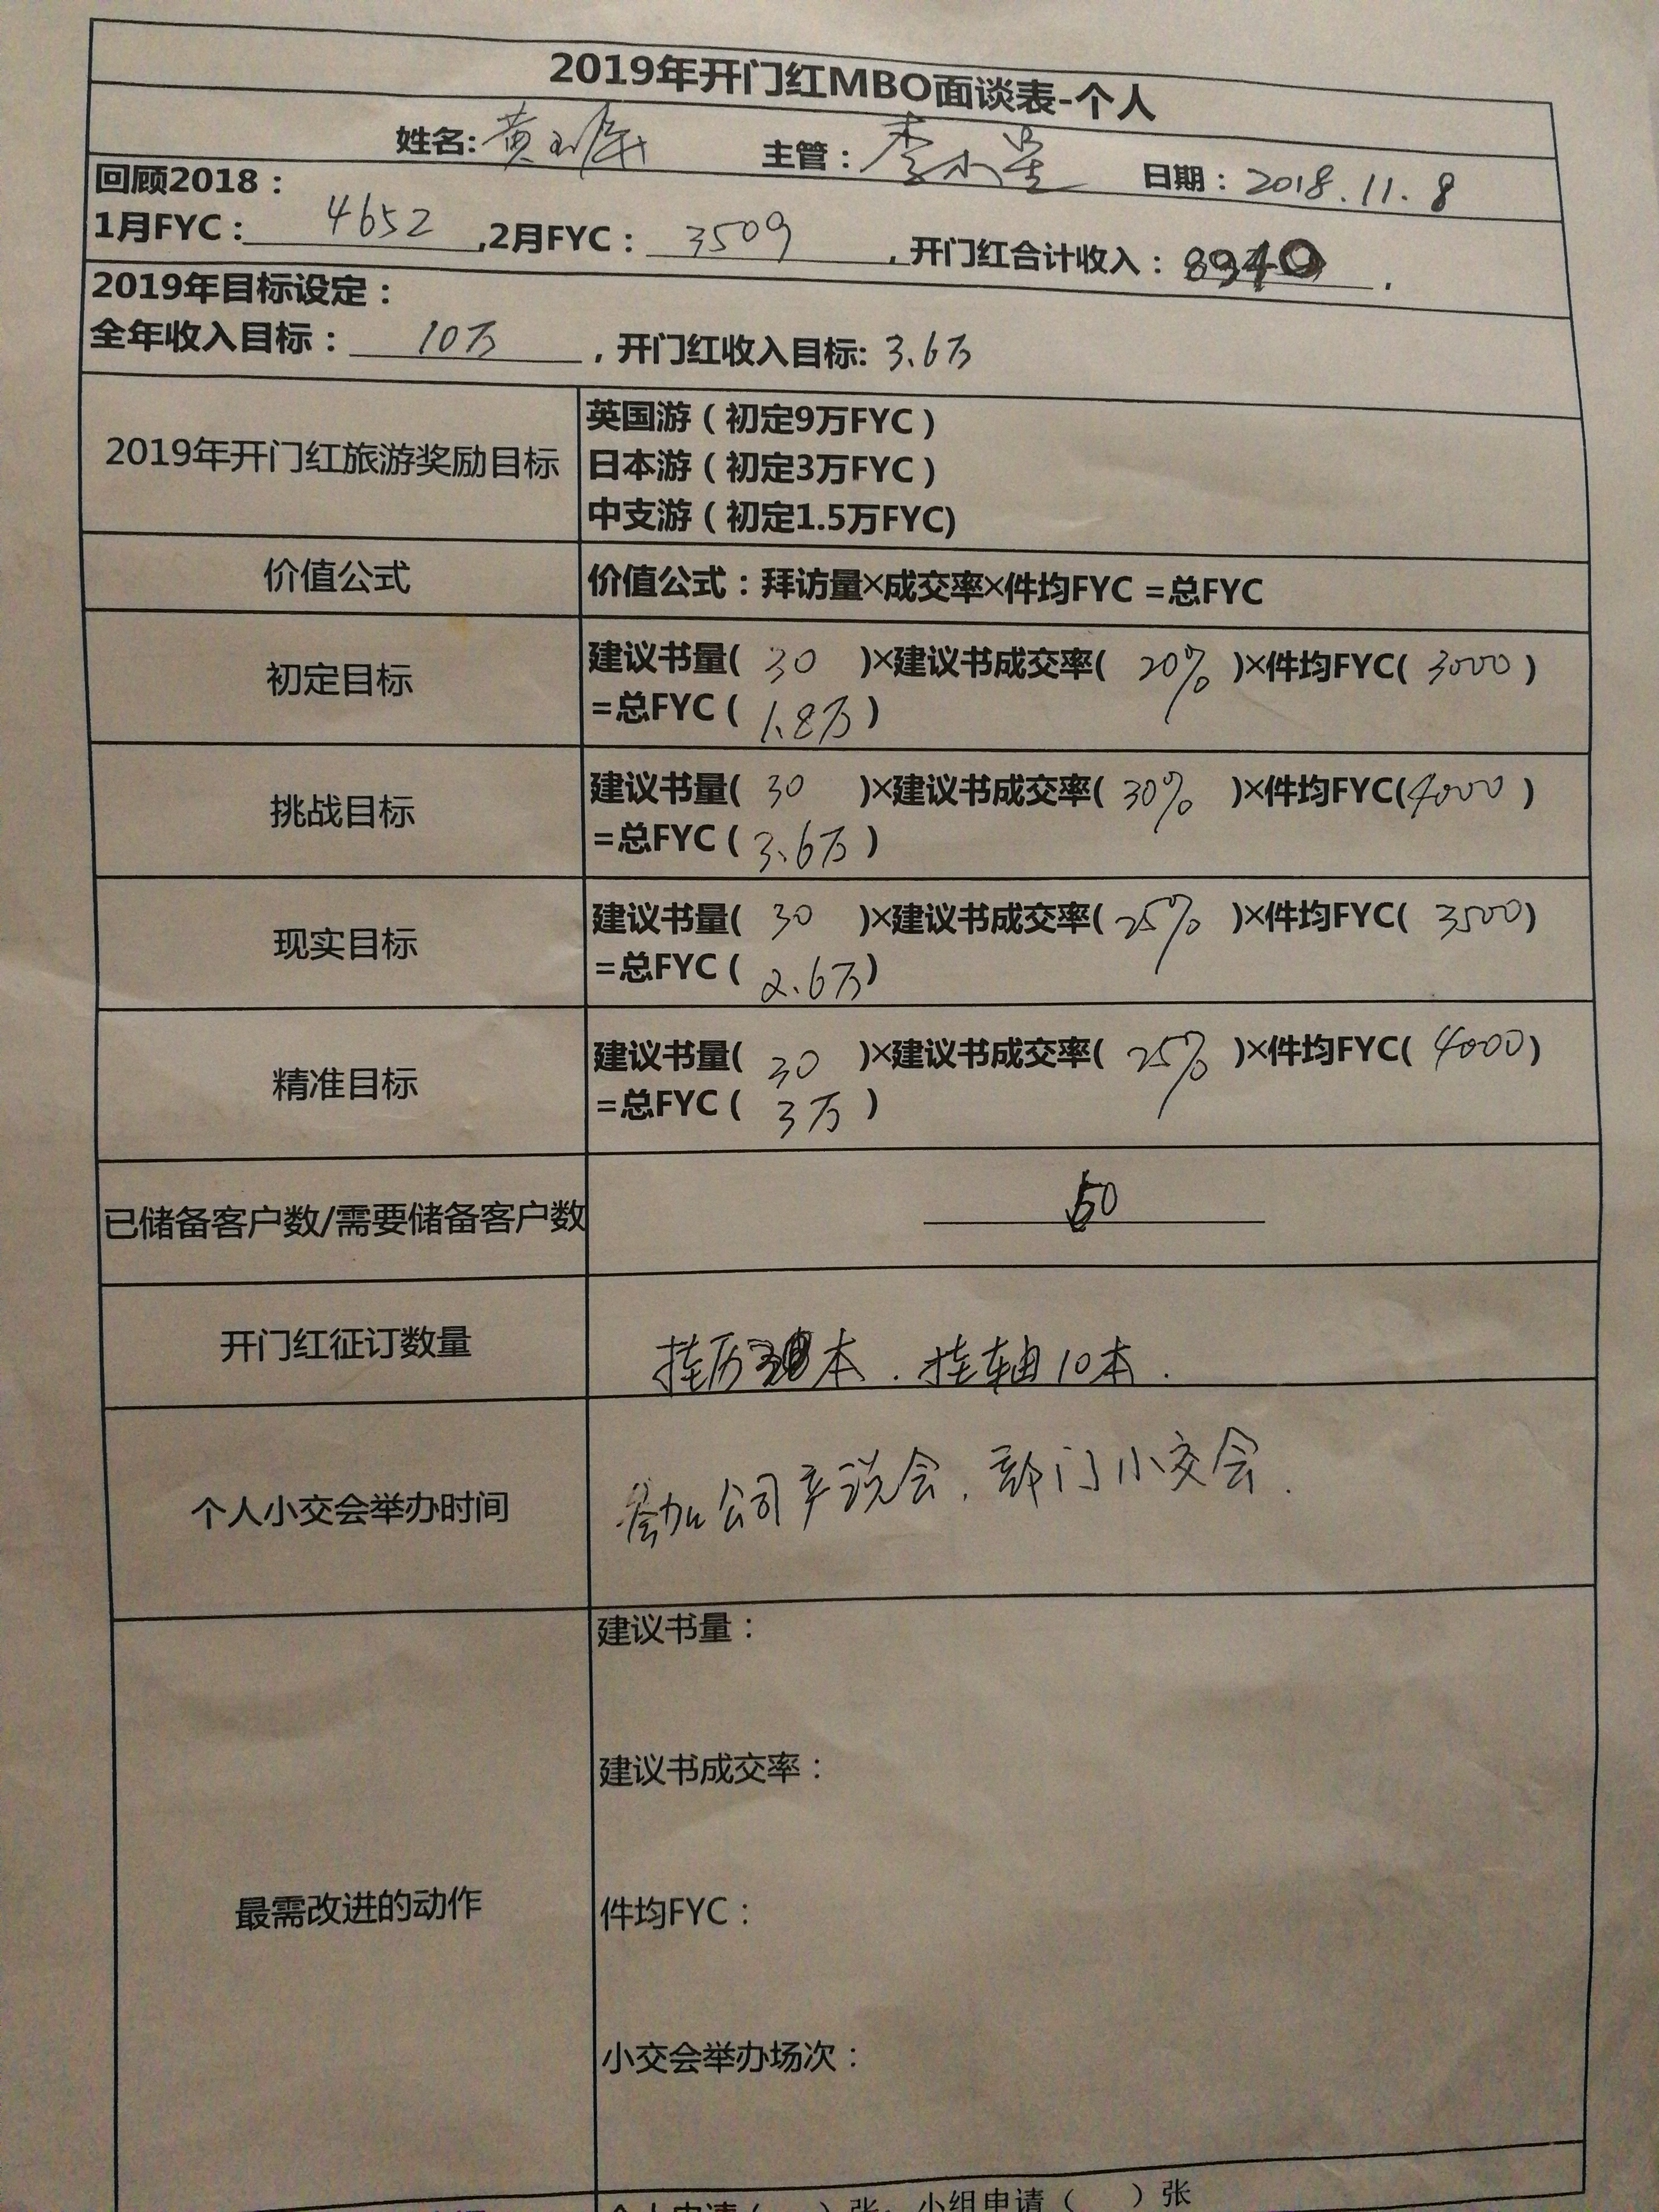 2019年开门红MBO面谈表-个人
姓名: 黄 主管：李小星 日期：2018.11.8
回顾2018：
1月FYC：4652 ,2月FYC：3509 ，开门红合计收入：8940 .
2019年目标设定：
全年收入目标：10万 ，开门红收入目标: 3.6万
2019年开门红旅游奖励目标
英国游（初定9万FYC）
日本游（初定3万FYC）
中支游（初定1.5万FYC)
价值公式
价值公式：拜访量×成交率×件均FYC =总FYC
初定目标
建议书量( 30 )×建议书成交率( 20% )×件均FYC( 3000 )
=总FYC（ 1.8万 ）
挑战目标
建议书量( 30 )×建议书成交率( 30% )×件均FYC( 4000 )
=总FYC（ 3.6万 ）
现实目标
建议书量( 30 )×建议书成交率( 25% )×件均FYC( 3500 )
=总FYC（ 2.6万 ）
精准目标
建议书量( 30 )×建议书成交率( 25% )×件均FYC( 4000 )
=总FYC（ 3万 ）
已储备客户数/需要储备客户数
50
开门红征订数量
挂历 本．挂轴10本．
个人小交会举办时间
参加公司产说会．部门小交会．
最需改进的动作
建议书量：
建议书成交率：
件均FYC：
小交会举办场次：
个人申请（ ）张，小组申请（ ）张